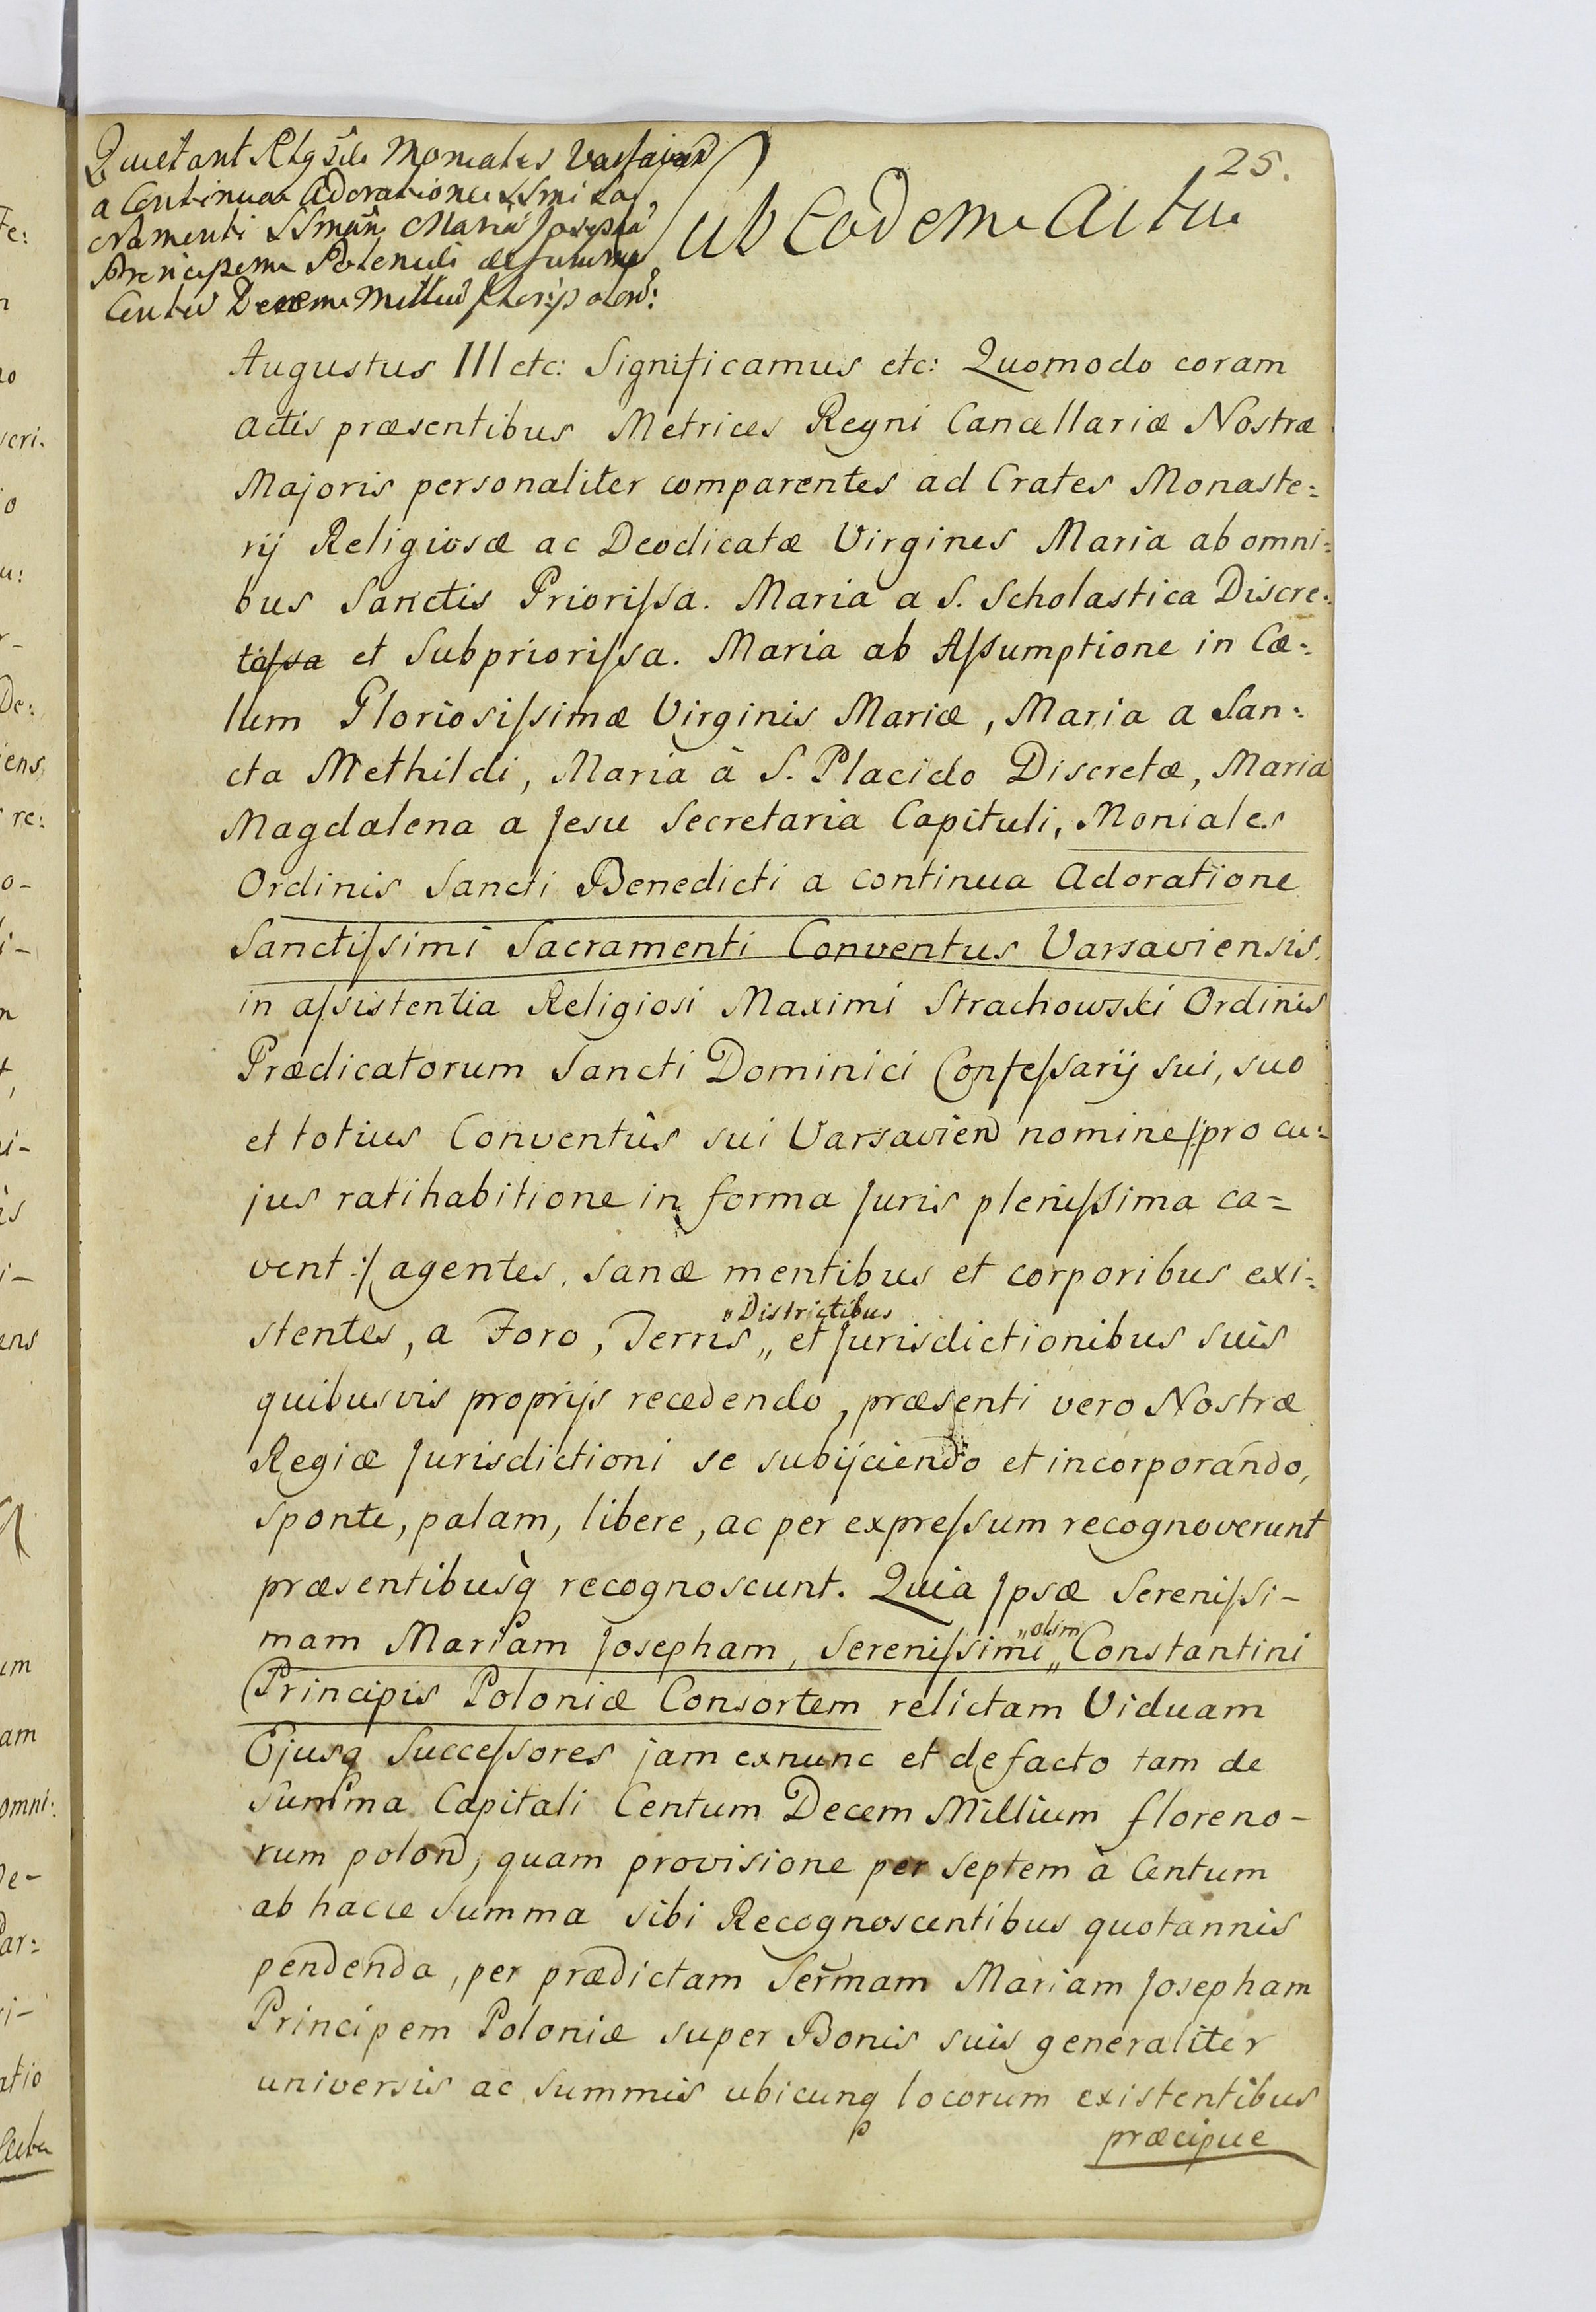 25.
Quietant Rlgsae Moniales Varsavien
a Continua Adoratione SSmi Sa
cramenti SSmam Mariã Josephã
Principem Poloniae de summa
Centũ Decem Milliũ flor: polon:
Sub Eodem Actu
Augustus III etc: Significamus etc: Quomodo coram
actis præsentibus Metrices Regni Cancellariæ Nostræ
Majoris personaliter comparentes ad Crates Monaste:
rij Religiosæ ac Deodicatæ Virgines Maria ab omni:
bus Sanctis Priorissa. Maria a S. Scholastica Discre:
tassa et Subpriorissa. Maria ab Assumptione in Cæ:
lum Gloriosissimæ Virginis Mariæ, Maria a San:
cta Methildi, Maria à S. Placido Discretæ, Maria
Magdalena a Jesu Secretaria Capituli, Moniales
Ordinis Sancti Benedicti a continua Adoratione
Sanctissimi Sacramenti Conventus Varsaviensis.
in assistentia Religiosi Maximi Strachowski Ordinis
Prædicatorum Sancti Dominici Confessarij sui, suo
et totius Conventûs sui Varsavien nomine /:pro cu:
jus ratihabitione in forma Juris plenissima ca=
vent :/ agentes, sanæ mentibus et corporibus exi:
stentes, a Foro, Terris „ et Jurisdictionibus suis
„Districtibus
quibusvis proprijs recedendo, præsenti vero Nostræ
Regiæ Jurisdictioni se subijciendo et incorporando,
sponte, palam, libere, ac per expressum recognoverunt
præsentibusq recognoscunt. Quia Jpsæ Serenissi-
mam Mariam Josepham, Serenissimi „ Constantini
„olim
Principis Poloniæ Consortem relictam Viduam
Ejusq Successores jam exnunc et de facto tam de
Summa Capitali Centum Decem Millium floreno-
rum polon, quam provisione per septem à Centum
ab hacce Summa sibi Recognoscentibus quotannis
pendenda, per prædictam Sermam Mariam Josepham
Principem Poloniæ super Bonis suis generaliter
universis ac summis ubicunq locorum existentibus
præcipue